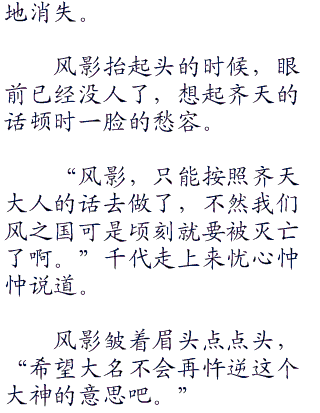 地消失。
风影抬起头的时候，眼
前已经没人了，想起齐天的
话顿时一脸的愁容。
“风影，只能按照齐天
大人的话去做了，不然我们
风之国可是顷刻就要被灭亡
了啊。”千代走上来忧心忡
忡说道。
风影皱着眉头点点头，
“希望大名不会再忤逆这个
大神的意思吧。”